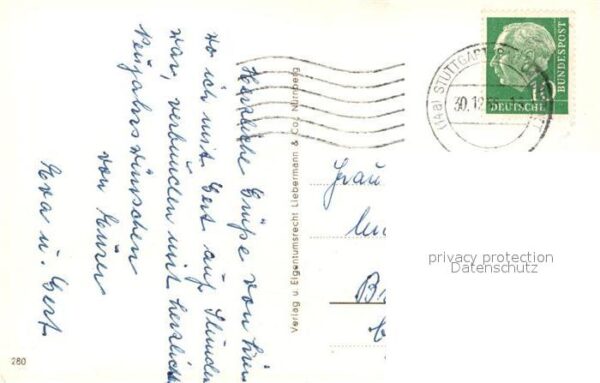 Herzliche Grüße von hier
wo ich mit Gert auf Stunden
war, verbunden mit herzlich
Neujahrswünschen
von Eurer
Eva u. Gert
Verlag u. Eigentumsrecht Liebermann & Co., Nürnberg
280
Frau
privacy protection
Datenschutz
(14a) STUTTGART
30.12.
BUNDESPOST
10
DEUTSCHE